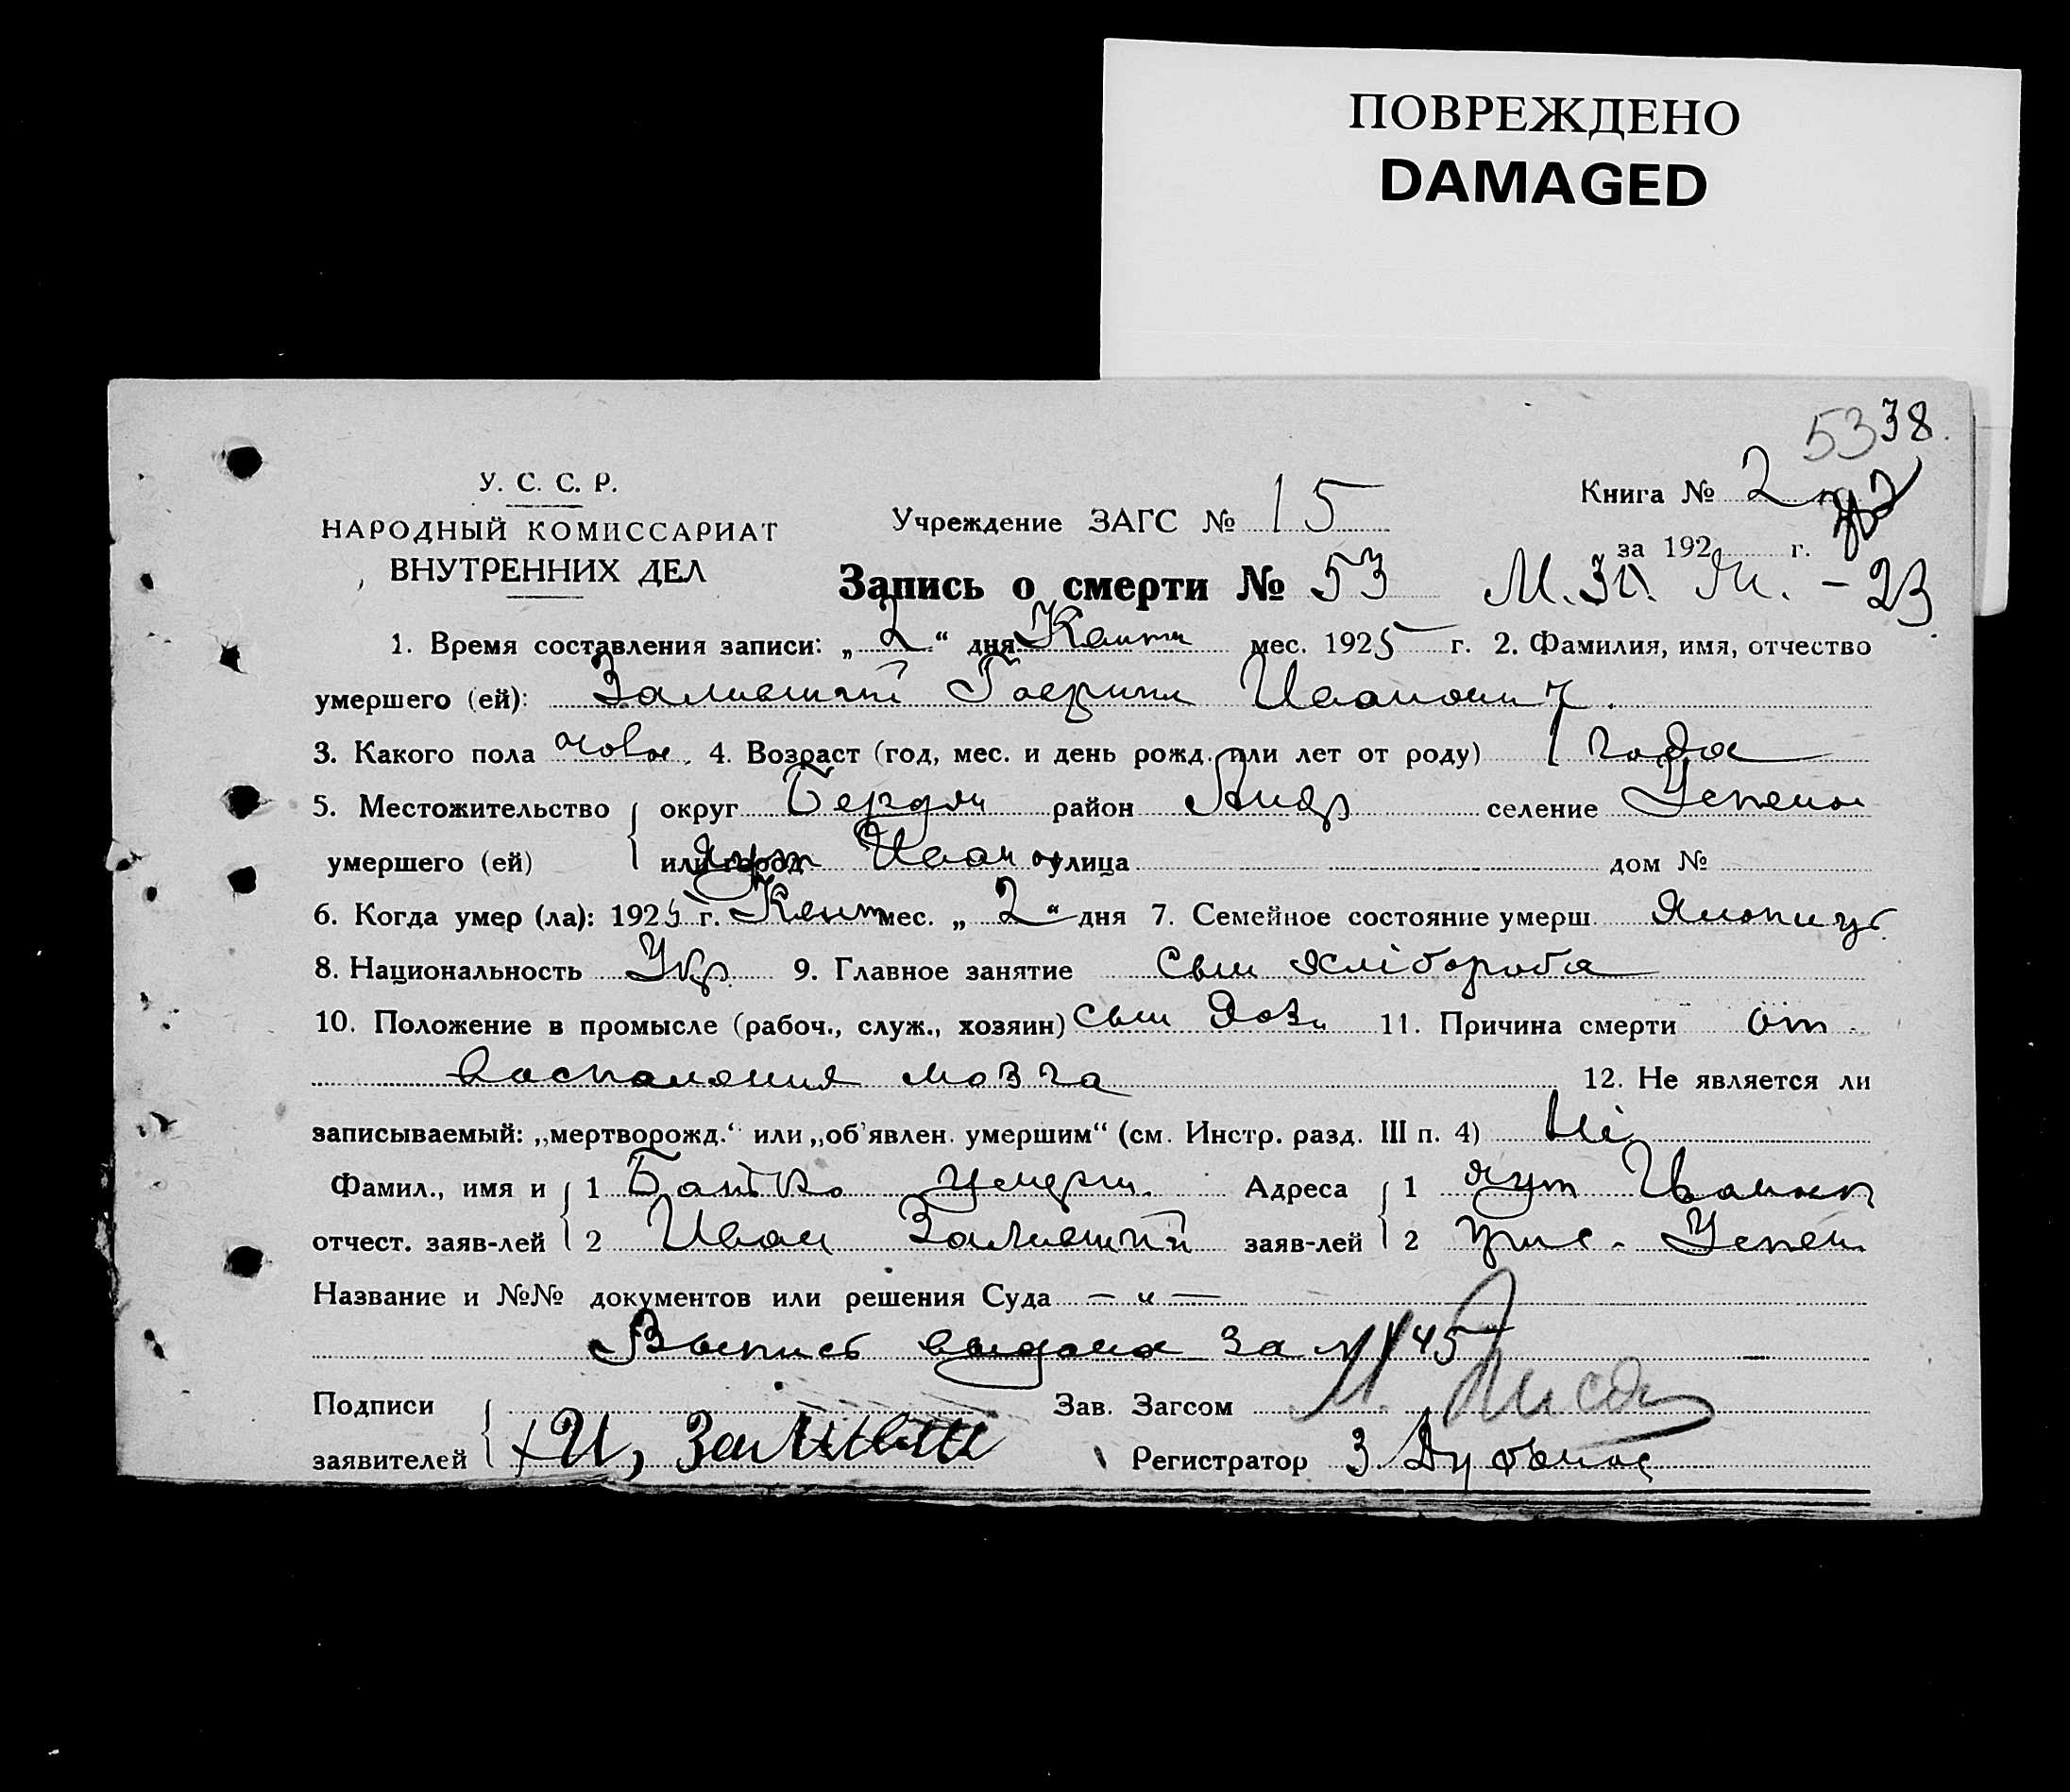 ПОВРЕЖДЕНО
DAMAGED
5338.
У. С. С. Р.
НАРОДНЫЙ КОМИССАРИАТ
ВНУТРЕННИХ ДЕЛ
Учреждение ЗАГС № 15
Книга № 2
за 192 г.
Запись о смерти № 53 М. - 23
1. Время составления записи: „2“ дня мес. 1925 г. 2. Фамилия, имя, отчество
умершего (ей): Иванович.
3. Какого пола чолов. 4. Возраст (год, мес. и день рожд. или лет от роду) 1 года
5. Местожительство округ Бердян район Андр селение Успенов
умершего (ей) или город хут Иванов улица дом №
6. Когда умер (ла): 1925 г. мес. „2“ дня 7. Семейное состояние умерш.
8. Национальность Укр. 9. Главное занятие Син хлібороба
10. Положение в промысле (рабоч., служ., хозяин) Син Хозя 11. Причина смерти от
воспаления мозга 12. Не является ли
записываемый: „мертворожд.“ или „об'явлен. умершим“ (см. Инстр. разд. III п. 4) Ні
Фамил., имя и 1 Батько умерш. Адреса 1 хут Иванов
отчест. заяв-лей 2 Иван заяв-лей 2 Успен
Название и №№ документов или решения Суда — „ —
Выпись выдана за № 145
Подписи Зав. Загсом
заявителей И, Регистратор З